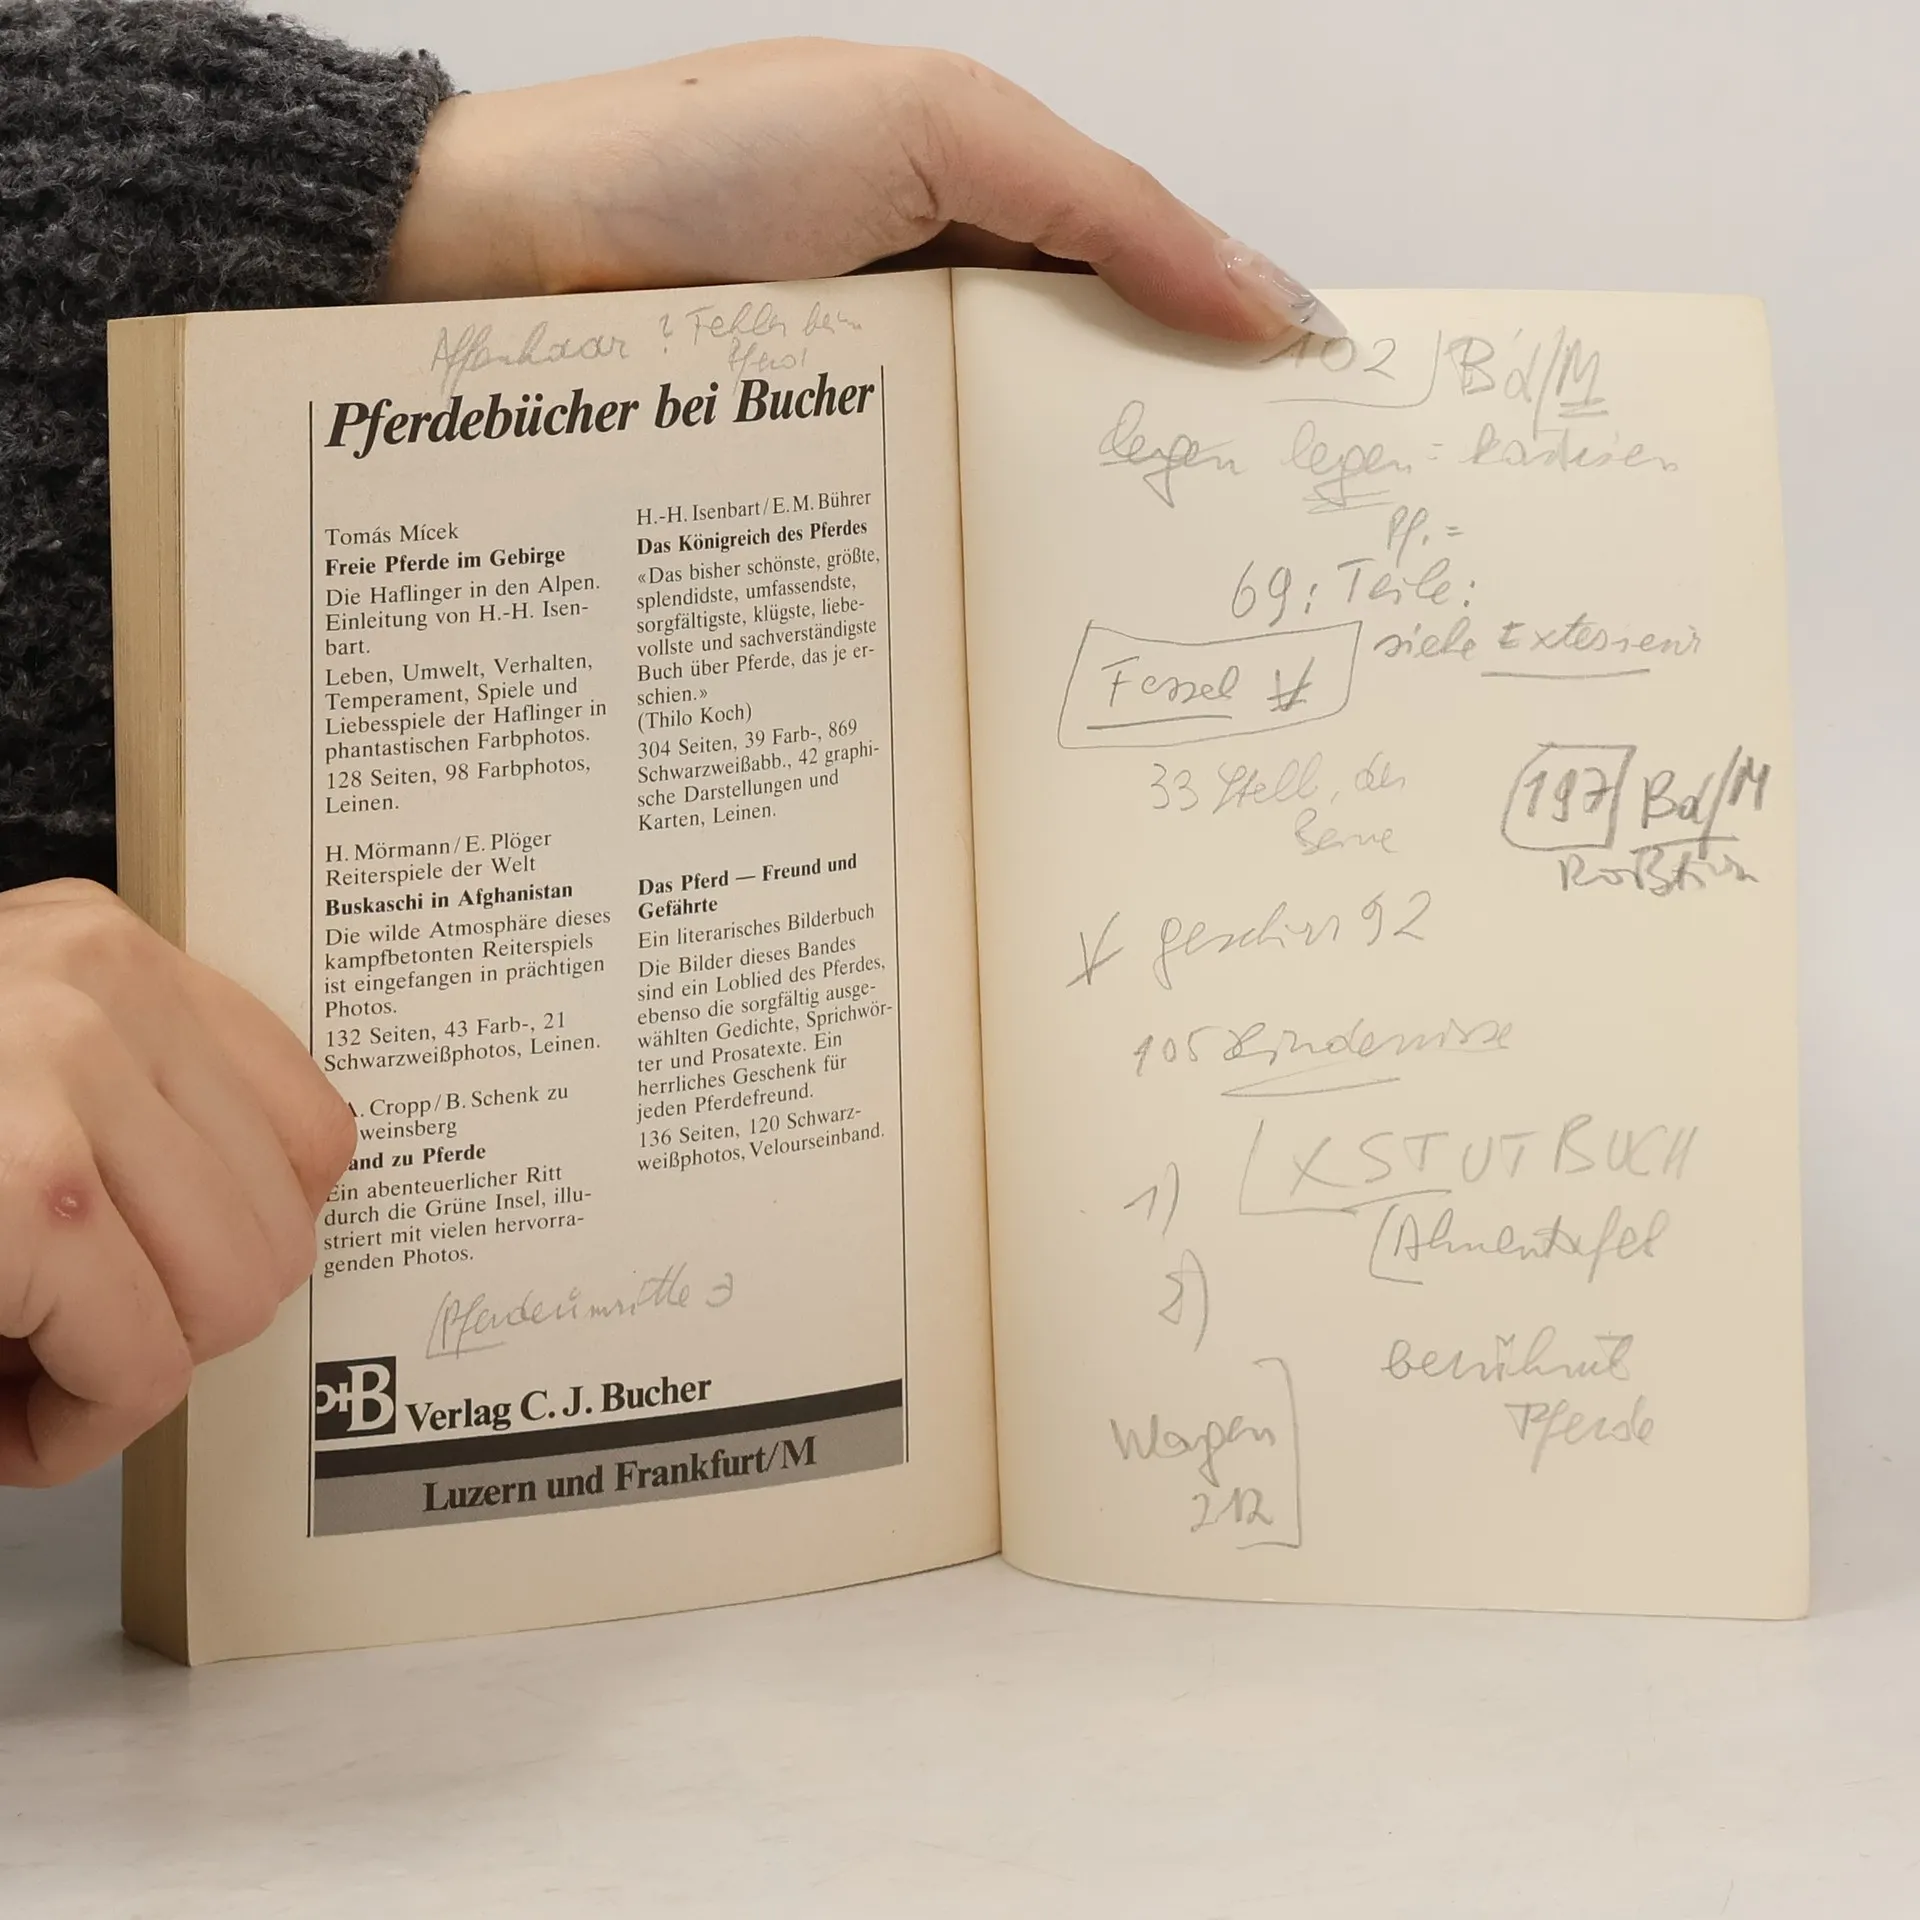 Affenhaar ? Fehler beim
Pferd
Pferdebücher bei Bucher
Tomás Mícek
Freie Pferde im Gebirge
Die Haflinger in den Alpen.
Einleitung von H.-H. Isen-
bart.
Leben, Umwelt, Verhalten,
Temperament, Spiele und
Liebesspiele der Haflinger in
phantastischen Farbphotos.
128 Seiten, 98 Farbphotos,
Leinen.
H. Mörmann/E. Plöger
Reiterspiele der Welt
Buskaschi in Afghanistan
Die wilde Atmosphäre dieses
kampfbetonten Reiterspiels
ist eingefangen in prächtigen
Photos.
132 Seiten, 43 Farb-, 21
Schwarzweißphotos, Leinen.
A. Cropp/B. Schenk zu
weinsberg
and zu Pferde
Ein abenteuerlicher Ritt
durch die Grüne Insel, illu-
striert mit vielen hervorra-
genden Photos.
H.-H. Isenbart/E. M. Bührer
Das Königreich des Pferdes
«Das bisher schönste, größte,
splendidste, umfassendste,
sorgfältigste, klügste, liebe-
vollste und sachverständigste
Buch über Pferde, das je er-
schien.»
(Thilo Koch)
304 Seiten, 39 Farb-, 869
Schwarzweißabb., 42 graphi-
sche Darstellungen und
Karten, Leinen.
Das Pferd — Freund und
Gefährte
Ein literarisches Bilderbuch
Die Bilder dieses Bandes
sind ein Loblied des Pferdes,
ebenso die sorgfältig ausge-
wählten Gedichte, Sprichwör-
ter und Prosatexte. Ein
herrliches Geschenk für
jeden Pferdefreund.
136 Seiten, 120 Schwarz-
weißphotos, Velourseinband.
B Verlag C. J. Bucher
Luzern und Frankfurt/M
102 Bd/M
legen legen =
Pf. =
69: Teile:
siehe Exterieur
Fessel
33 Stell. der
Beine
197 Bd/M
geschirr 92
105 Hindernisse
1) X STUTBUCH
Ahnentafel
2)
berühmt
Pferde
Wagen
212